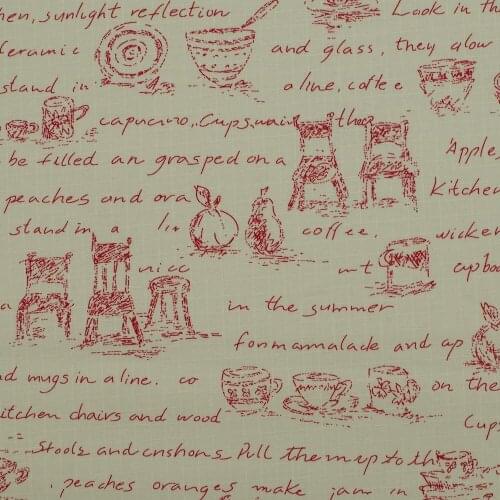 hen, sunlight reflection Look in th
ceramic and glass, they glow
stand in a line, coffee
capucino, Cups, wait ther
be filled an grasped on a Apple
peaches and ora Kitchen
stand in a lin coffee. wicker
nice nt cupboa
a in the summer
for marmalade and ap
d mugs in a line. co on the
kitchen chairs and wood Cups
Stools and cushons. Pull them up to th
. peaches oranges make jam in